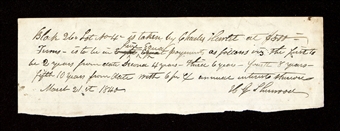 Block 26 Lot No 4 is taken by Charles Hewitt at $500 —
five equal
Terms – is to be in payment, as follows viz the first to
be 2 years from date second 4 years – third 6 years – fourth 8 years –
fifth 10 years from date with 6 pr ct annual interest thereon
March 21st 1840